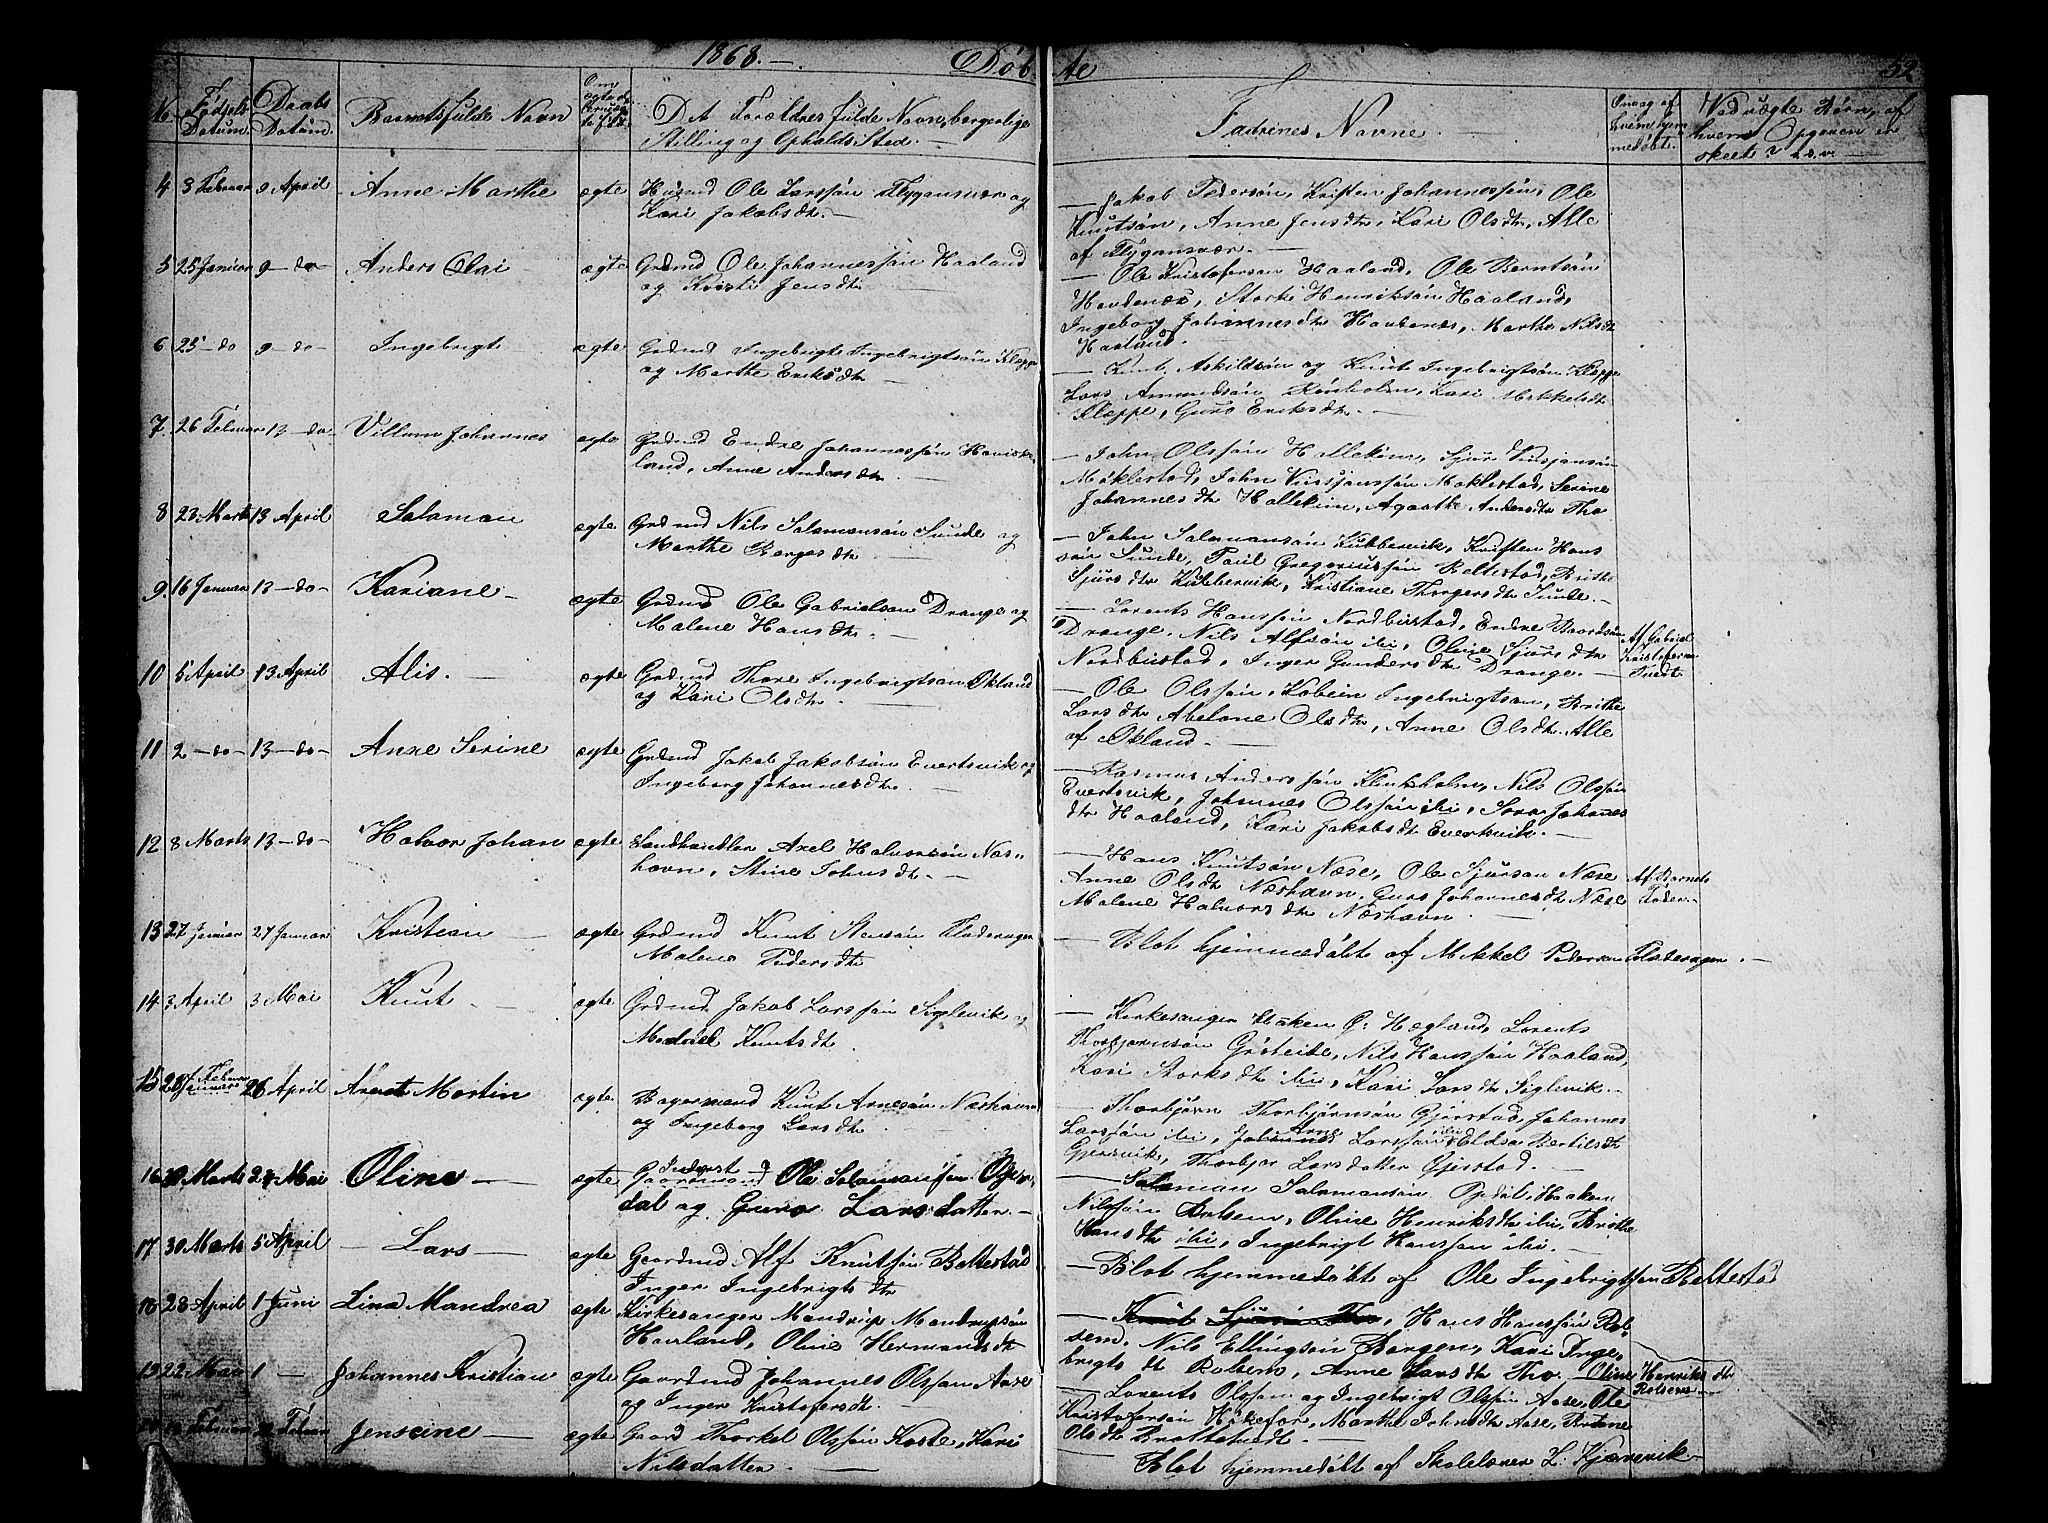 1868. — Døb te 52
No. Fødsels Datum. Daabs Datum. Barnets fulde Navn Om ægte De Foreldres fulde Navn, borgerlige Stilling og Opholds Sted. — Faderenes Navne. Om og af hvem hjemmedøbt. Ved uægte Børn, af hvem Opgaven er skeet o. s. v.
4 3 Februar 9 April Anne Marthe ægte Husmd Ole Larssøn Flygansvær og
Kari Jakobsdtr. —
— Jakob Pedersøn, Kristen Johannessøn, Ole
Knutsøn, Anne Jensdtr, Kari Olsdtr, Alle
af Flygansvær. —
5 25 Januar 9 — do Anders Olai ægte Grdmd Ole Johannessøn Haaland
og Kristi Jensdtr —
— Ole Kristofersøn Haaland, Ole Berntsøn
Havdenæs, Storke Henriksøn Haaland,
Ingeborg Johannesdtr Havdenæs, Marthe Nilsdtr
Haaland. —
6 25 — do 9 — do — Ingebrigt ægte Grdmd Ingebrigt Ingebrigtsøn Kleppe
og Marthe Eriksdtr —
— Knut Askildsøn og Knut Ingebrigtsøn Kleppe
Lars Ammundsøn Rønholm, Kari Mikkelsdtr
Kleppe, Guro Eriksdtr. —
7. 26 Februar 13 — do — Villum Johannes ægte Grdmd Endre Johannessøn
land, Anne Andersdtr —
— John Olssøn Hallekim, Sjur
Møklestad, John Møklestad, Serine
Johannesdtr Hallekim, Agaathe Andersdtr Tho
8 23 Marts 13 April Salamon ægte Grdmd Nils Salamonsøn Sunde og
Marthe Børgesdtr —
— John Salamonsøn Kubbervik, Kristen Hans
søn Sunde, Poul Gregoriussøn Beltestad, Brithe
Sjursdtr Kubbervik, Kristiane Thorgersdtr Sunde. —
9. 16 Januar 13 — do — Kariane — ægte Grdmd Ole Gabrielsøn Drange og
Malene Hansdtr. —
— Lorents Hanssøn Nordbustad, Endre Baardsøn
Drange, Nils Alfsøn ibi, Oline Sjursdtr
Nordbustad, Inger Gundersdtr Drange. —
Af Gabriel
Kristofersen
Tvedt
10 5 April 13 April Alis. — ægte Grdmd Thore Ingebrigtsøn Økland
og Kari Olsdtr —
— Ole Olssøn, Kobein Ingebrigtsøn, Brithe
Larsdtr Abelone Olsdtr, Anne Olsdtr. Alle
af Økland. —
11 2 — do — 13 — do — Anne Serine ægte Grdmd Jakob Jakobsøn Evertsvik og
Ingeborg Johannesdtr. —
— Rasmus Anderssøn Klinkholm, Nils Olssøn
Evertsvik, Johannes Olssøn ibi, Johannes
dtr Haaland, Kari Jakobsdtr Evertsvik. —
12 8 Marts 13 — do — Halvor Johan ægte Landhandler Axel Halvorsøn Næs-
havn, Stine Johnsdtr. —
— Hans Knutsøn Næse, Ole Sjursøn Næse
Anne Olsdtr Næshavn, Guro Johannesdtr Næse
Malene Halvorsdtr Næshavn —
Af Barnets
Fader. —
13 27 Januar 27 Januar Kristian — ægte Grdmd Knut Stensøn Fladeragen
Malene Pedersdtr
— Blot hjemmedøbt af Mikkel Pedersøn Fladeragen. —
14 3 April 3 Mai Knut — ægte Grdmd Jakob Larssøn Siglevik og
Knutsdtr. —
— Kirkesanger Haaken Ø. Høgland, Lorents
Thorbjørnsøn Grøteide, Nils Hanssøn Haaland,
Kari Storksdtr ibi, Kari Larsdtr Siglevik. —
15 28 Februar Januar 26 April Arent Martin ægte Bagermand Knut Arnesøn Næshavn
og Ingeborg Larsdtr. —
— Thorbjørn Thorbjørnsøn Gjerstad, Johannes
Larssøn ibi, Johannes Arne Larssøn ibi Eldsa Bertilsdtr
Gjersvik, Thorbjør Larsdatter Gjerstad. —
16 Marts 24 Mai Oline — ægte Inderst Gaardmand Ole Salamonsen Ope-
dal og Guro Larsdatter. —
— Salamon Salamonsøn Opdal, Haaken
Nilssøn, Oline Henriksdtr ibi, Brithe
Hansdtr ibi, Ingebrigt Hanssøn ibi. —
17 30 Marts 5 April — Lars — ægte Gaardmd Alf Knutssøn Beltestad
Inger Ingebrigtsdtr
— Blot hjemmedøbt af Ole Ingebrigtsen Beltestad
18 28 April 1 Juni Lina Mandrea ægte Kirkesanger Mandrup Mandrupsøn
Haaland, Oline Hermansdtr
— Knut Sjursøn Tho, Hans Hanssøn Rol-
sem, Nils Ellingsøn Bergen, Kari Inge-
brigtsdtr Rolsem, Anne Larsdtr Tho. Oline Henriksdtr
Rolsem —
19 22 Mai 1 — Johannes Kristian ægte Gaardmd Johannes Olssøn Aase
og Inger Kristofersdtr. —
— Lorents Olssøn og Ingebrigt Olssøn Aase, Ole
Kristofersøn, Marthe Johnsdtr Aase,
Olsdtr —
Februar Februar Jenseine — ægte Gaard Thorkel Olssøn Koste, Kari
Nilsdatter. —
Blot hjemmedøbt af Skolelærer L. Kjærevik —